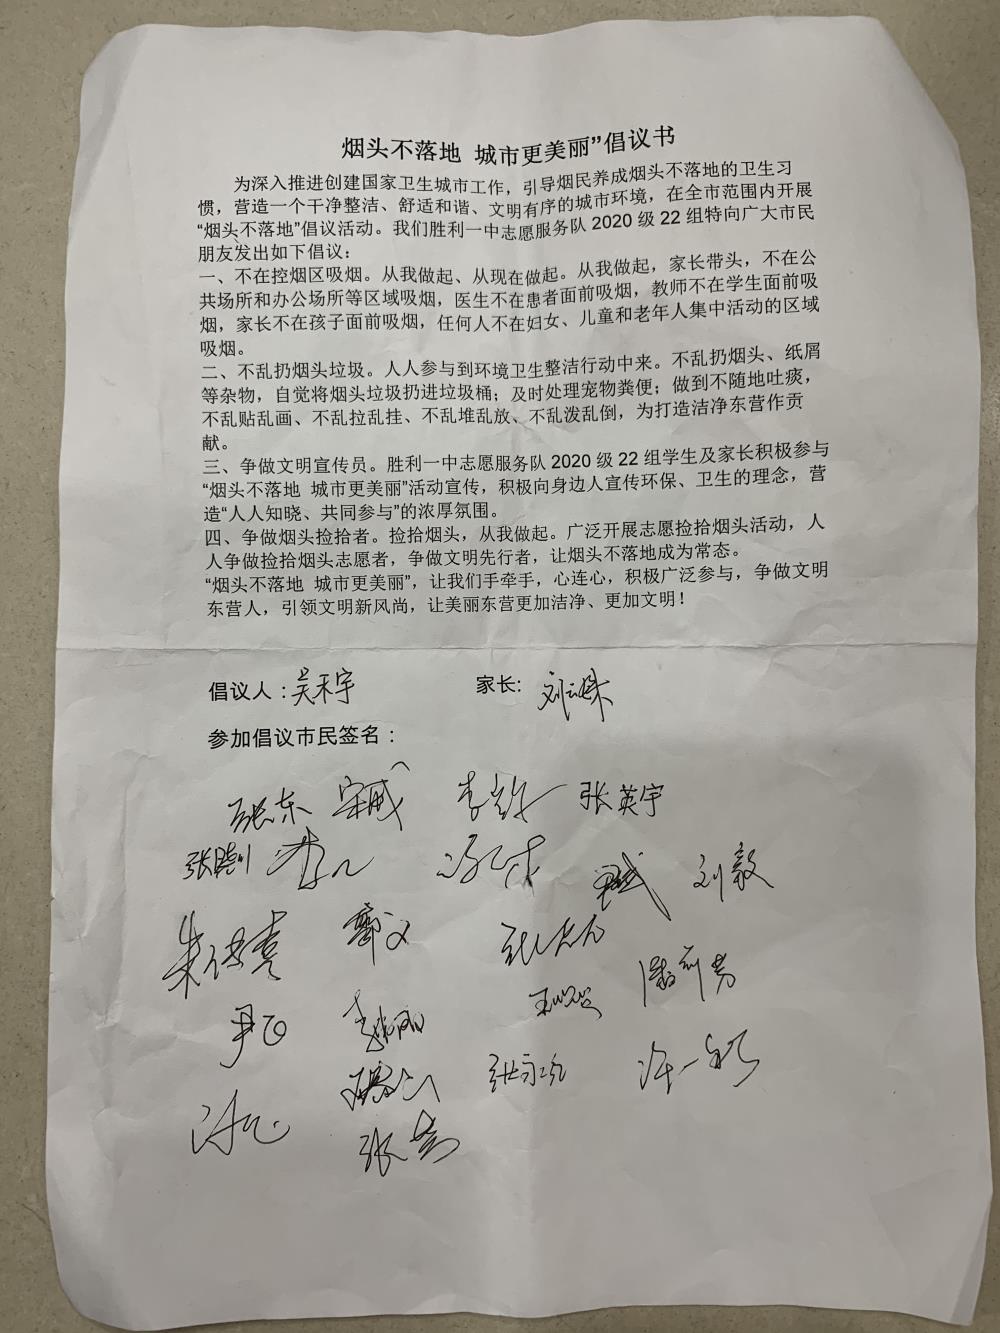 烟头不落地 城市更美丽”倡议书
为深入推进创建国家卫生城市工作，引导烟民养成烟头不落地的卫生习
惯，营造一个干净整洁、舒适和谐、文明有序的城市环境，在全市范围内开展
“烟头不落地”倡议活动。我们胜利一中志愿服务队 2020 级 22 组特向广大市民
朋友发出如下倡议：
一、不在控烟区吸烟。从我做起、从现在做起。从我做起，家长带头，不在公
共场所和办公场所等区域吸烟，医生不在患者面前吸烟，教师不在学生面前吸
烟，家长不在孩子面前吸烟，任何人不在妇女、儿童和老年人集中活动的区域
吸烟。
二、不乱扔烟头垃圾。人人参与到环境卫生整洁行动中来。不乱扔烟头、纸屑
等杂物，自觉将烟头垃圾扔进垃圾桶；及时处理宠物粪便；做到不随地吐痰，
不乱贴乱画、不乱拉乱挂、不乱堆乱放、不乱泼乱倒，为打造洁净东营作贡
献。
三、争做文明宣传员。胜利一中志愿服务队 2020 级 22 组学生及家长积极参与
“烟头不落地 城市更美丽”活动宣传，积极向身边人宣传环保、卫生的理念，营
造“人人知晓、共同参与”的浓厚氛围。
四、争做烟头捡拾者。捡拾烟头，从我做起。广泛开展志愿捡拾烟头活动，人
人争做捡拾烟头志愿者，争做文明先行者，让烟头不落地成为常态。
“烟头不落地 城市更美丽”，让我们手牵手，心连心，积极广泛参与，争做文明
东营人，引领文明新风尚，让美丽东营更加洁净、更加文明！
倡议人：吴禾宇 家长：
参加倡议市民签名：
张东 张英宇
刘毅
尹飞